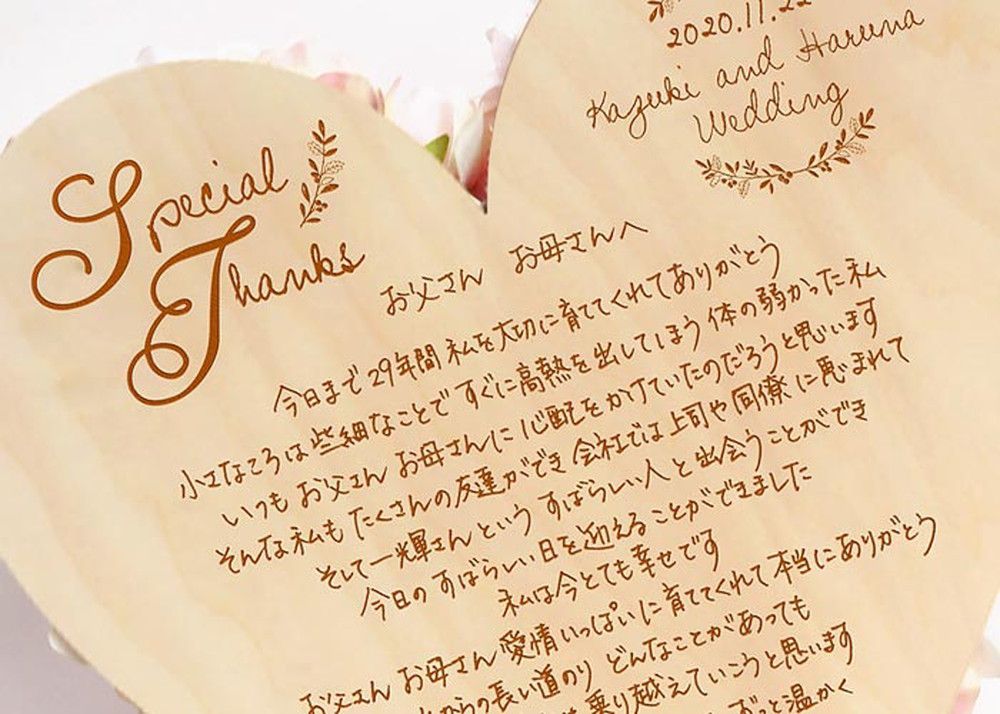 Special
Thanks
2020.11.22
Kazuki and Haruna
Wedding
お父さん お母さんへ
今日まで29年間 私を大切に育ててくれてありがとう
小さなころは些細なことですぐに高熱を出してしまう体の弱かった私
いつも お父さん お母さんに心配をかけていたのだろうと思います
そんな私も たくさんの友達ができ 会社では上司や同僚に恵まれて
そして一輝さんという すばらしい人と出会うことができ
今日のすばらしい日を迎えることができました
私は今とても幸せです
お父さん お母さん 愛情いっぱいに育ててくれて本当にありがとう
からの長い道のり どんなことがあっても
乗り越えていこうと思います
ずっと温かく